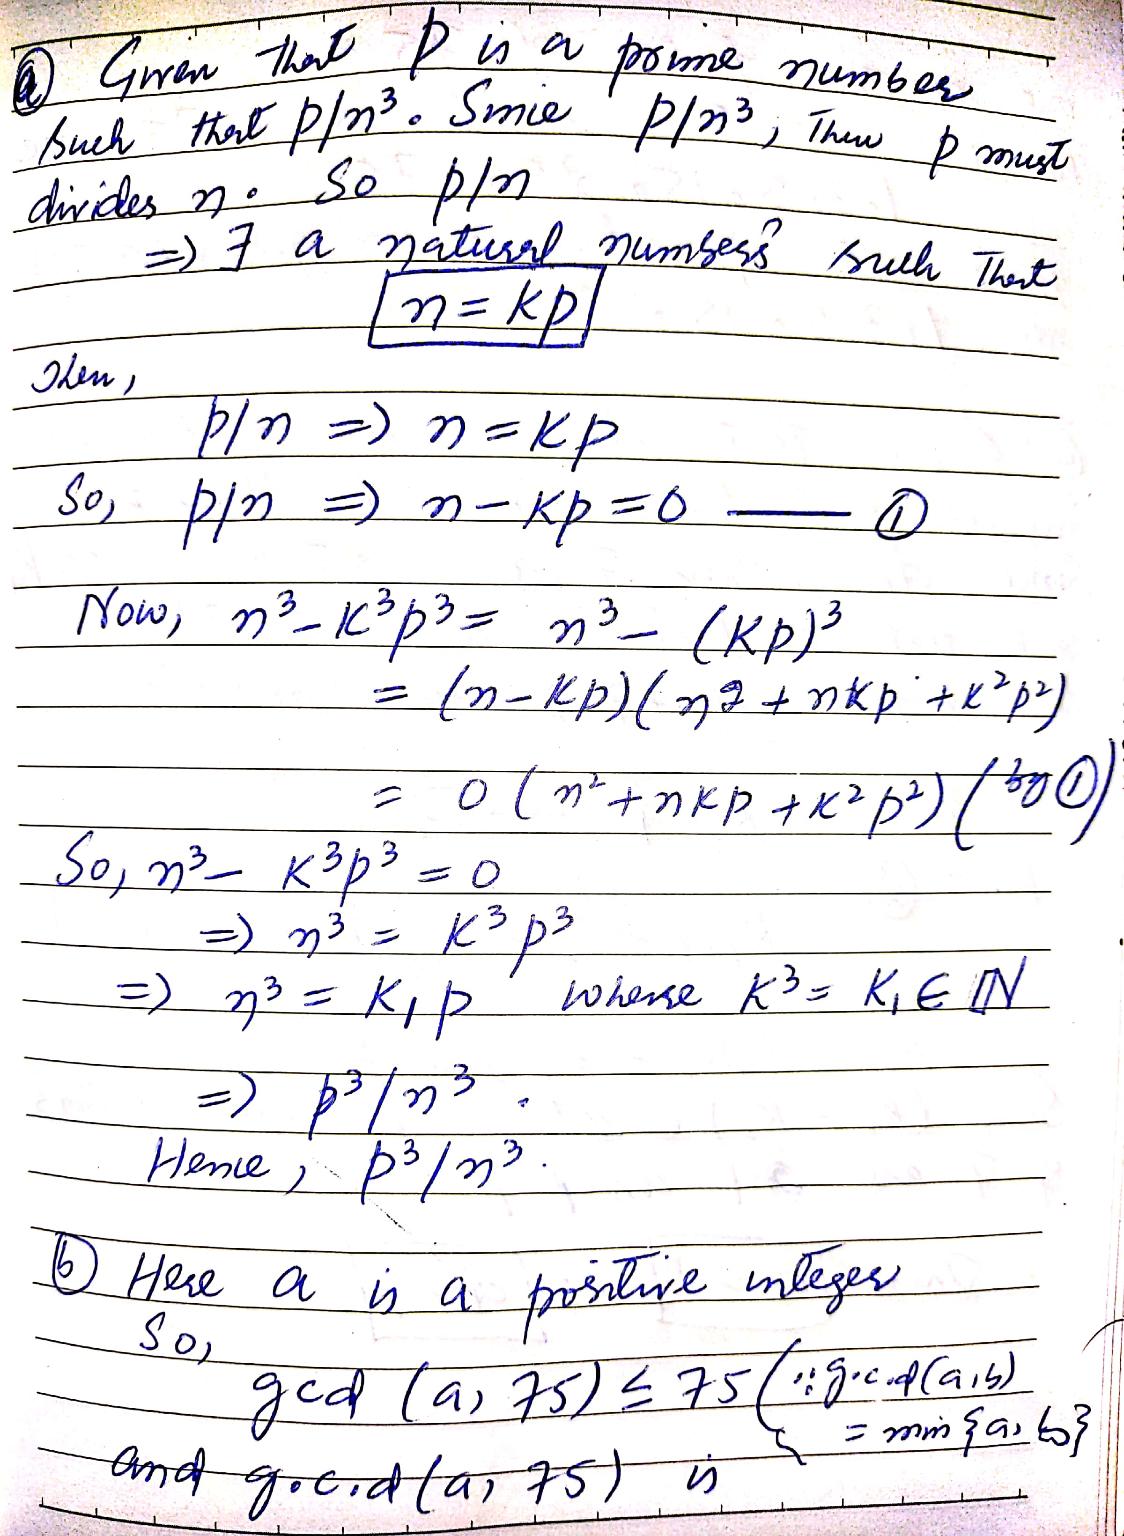 (a) Given that p is a prime number
such that p/n³. Since p/n³, Then p must
divides n. So p/n
=> ∃ a natural numbers such That
n = kp
Then,
p/n => n = kp
So, p/n => n - kp = 0 —— ①
Now, n³ - k³p³ = n³ - (kp)³
= (n - kp)(n² + nkp + k²p²)
= 0 (n² + nkp + k²p²) (by ①)
So, n³ - k³p³ = 0
=> n³ = k³p³
=> n³ = k₁p where k³ = k₁ ∈ ℕ
=> p³/n³.
Hence, p³/n³.
(b) Here a is a positive integer
So,
gcd (a, 75) ≤ 75 (∵ g.c.d(a,b)
= min {a, b}
and g.c.d(a, 75) is